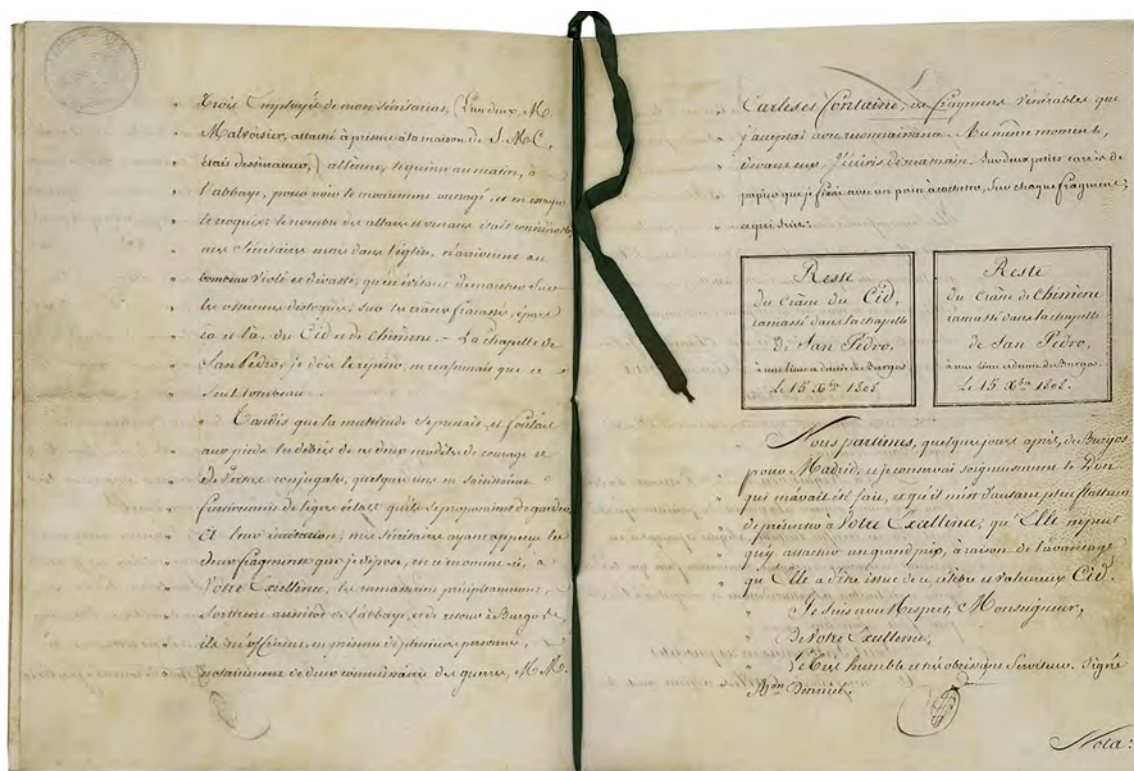 » Trois Employés de mon Sécrétariat, (L'un deux, M.
» Malvoisier, attaché à présent à la maison de S. M. C,
» était dessinateur,) allèrent, le quinze au matin, à
» l'abbaye, pour voir le monument outragé, et en essayer
» le croquis: le nombre des allans et venans était considérable
» mes Sécrétaires mais dans l'église, n'arrivèrent au
» tombeau violé et dévasté, qu'en évitant de marcher sur
» les ossemens disloqués, sur les crânes fracassés, épars
» ça et là, du Cid et de Chimène. – La chapelle de
» San Pedro, je dois le répéter, ne renfermait que ce
» seul tombeau.
» Tandis que la multitude se pressait, et foulait
» aux pieds les débris de ces deux modèles de courage et
» de vertu conjugale, quelques uns en saisissaient
» furtivement de légers éclats qu'ils se proposaient de garder,
» Et leur imitation, mes Sécrétaires ayant apperçu les
» deux fragmens que je dépose, en ce moment-ci, à
» Votre Excellence, les ramassèrent précipitamment,
» sortirent aussitôt de l'abbaye, et de retour à Burgos,
» ils m'offrirent, en présence de plusieurs personnes,
» notamment de deux commissaires des guerres, M.M.
Carlès et Fontaine, ces fragmens vénérables que
» j'acceptai avec reconnaissance. Au même moment,
» devant eux, J'écrivis de ma main, sur deux petits carrés de
» papier que je fixai avec un pain à cacheter, sur chaque fragment;
» ce qui suit:
Reste
du Crâne du Cid,
ramassé dans la chapelle
de San Pédro,
à une lieue et demie de Burgos
le 15 Xbre 1808
Reste
du Crâne de Chimène
ramassé dans la chapelle
de San Pédro,
à une lieue et demie de Burgos.
le 15 Xbre 1808.
Nous partimes, quelques jours après, de Burgos
pour Madrid, et je conservai soigneusement le Don
qui m'avait été fait, et qu'il m'est d'autant plus flatteur
de présenter à Votre Excellence, qu'Elle ne peut
qu'y attacher un grand prix, à raison de l'avantage
qu'Elle a d'être issue de ce célèbre et valeureux Cid.
Je suis avec Respect, Monseigneur,
De Votre Excellence,
Le très humble et très obéissant Serviteur. Signé
Bon Denniée.
Nota: